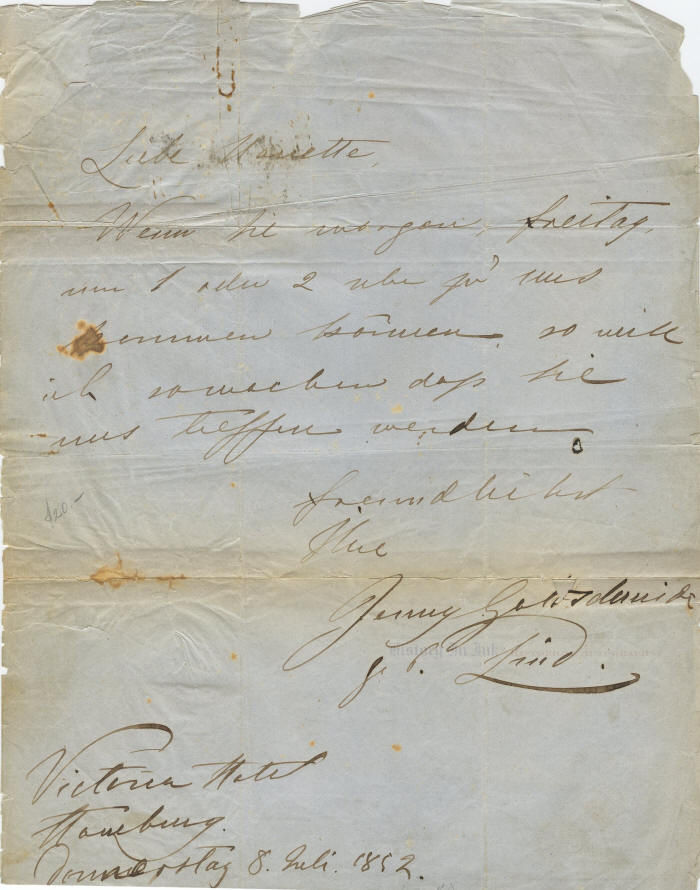 Liebe Nanette,
Wenn Sie morgen, freitag,
um 1 oder 2 uhr zu uns
kommen können, so will
ich so machen daß Sie
uns treffen werden
$20.-
freundlichst
Ihre
Jenny Goldschmidt
History In Ink
geb. Lind.
Victoria Hotel
Homburg.
Donnerstag 8. Juli. 1852.